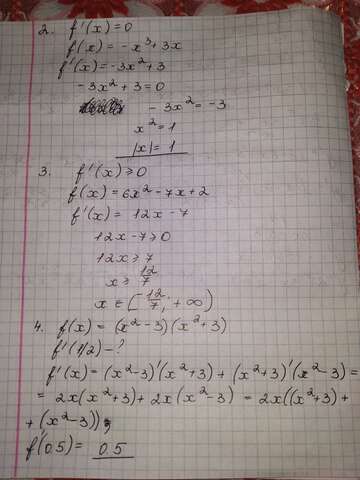 2. f'(x)=0
f(x) = -x³+3x
f'(x)=-3x²+3
-3x²+3=0
-3x²=-3
x²=1
|x|=1
3. f'(x)≥0
f(x)=6x²-7x+2
f'(x)= 12x-7
12x-7≥0
12x≥7
x≥12/7
x∈[-12/7; +∞)
4. f(x)=(x²-3)(x²+3)
f'(1/2)-?
f'(x)=(x²-3)'(x²+3)+(x²+3)'(x²-3)=
= 2x(x²+3)+2x(x²-3) = 2x((x²+3)+
+(x²-3));
f'(0.5)= 0.5